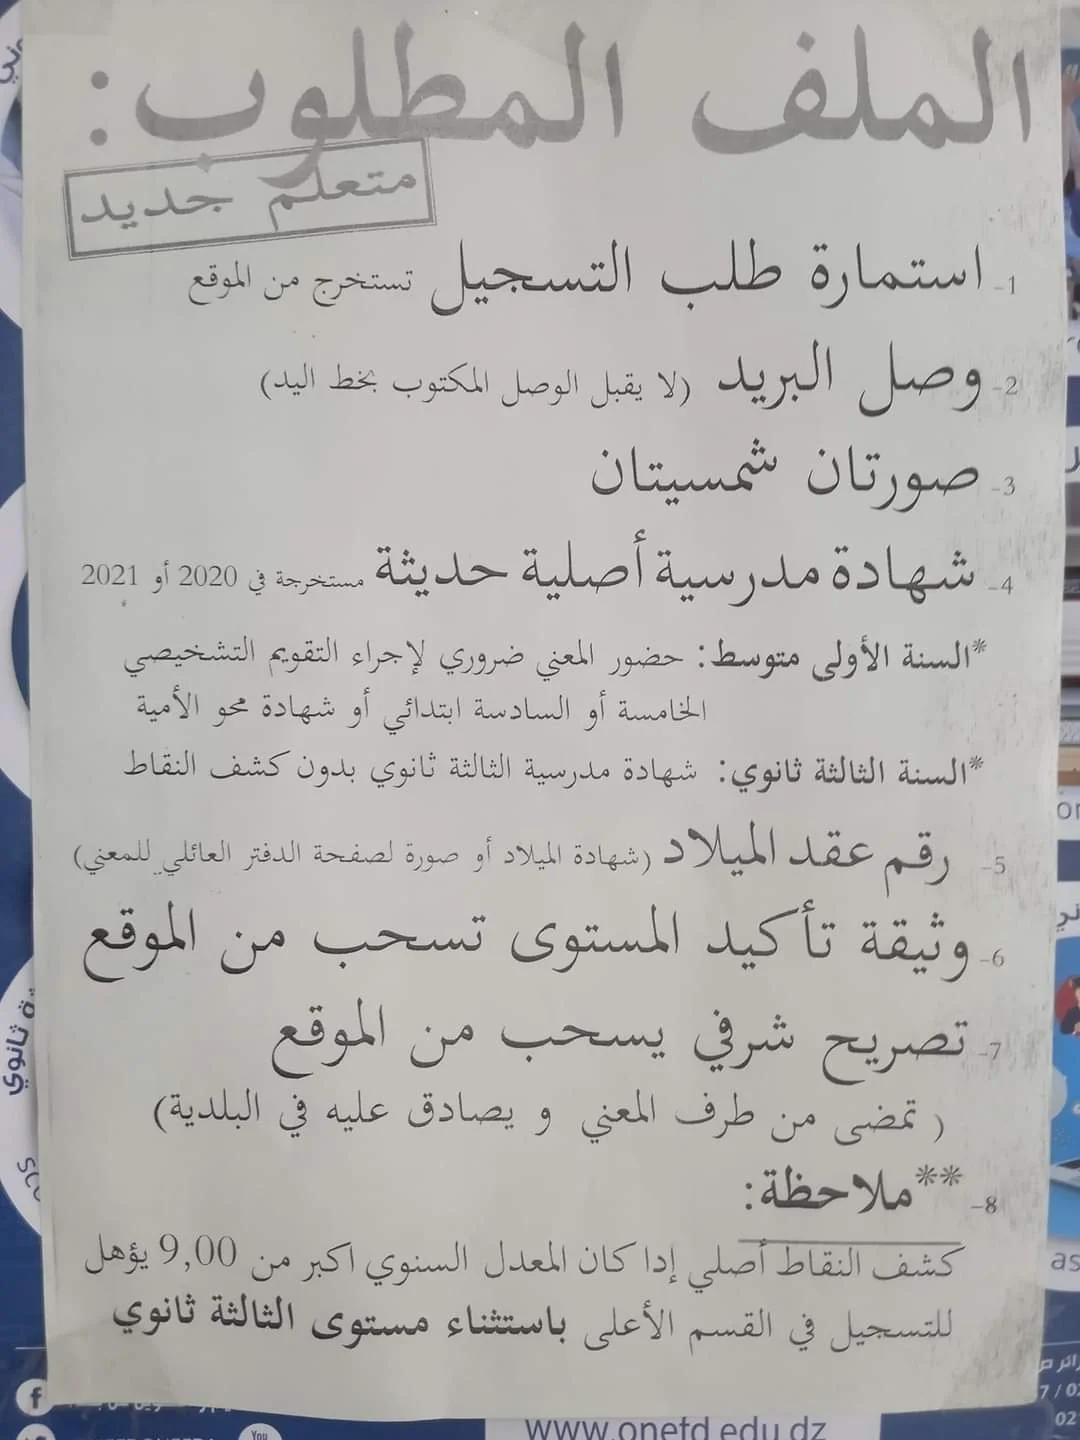 الملف المطلوب:
متعلم جديد
1- استمارة طلب التسجيل تستخرج من الموقع
2- وصل البريد (لا يقبل الوصل المكتوب بخط اليد)
3- صورتان شمسيتان
4- شهادة مدرسية أصلية حديثة مستخرجة في 2020 أو 2021
*السنة الأولى متوسط: حضور المعني ضروري لإجراء التقويم التشخيصي
الخامسة أو السادسة ابتدائي أو شهادة محو الأمية
*السنة الثالثة ثانوي: شهادة مدرسية الثالثة ثانوي بدون كشف النقاط
5- رقم عقد الميلاد (شهادة الميلاد أو صورة لصفحة الدفتر العائلي للمعني)
6- وثيقة تأكيد المستوى تسحب من الموقع
7- تصريح شرفي يسحب من الموقع
( تمضى من طرف المعني و يصادق عليه في البلدية)
8- **ملاحظة:
كشف النقاط أصلي إدا كان المعدل السنوي اكبر من 9,00 يؤهل
للتسجيل في القسم الأعلى باستثناء مستوى الثالثة ثانوي
www.onefd.edu.dz
You
ة ثانوي